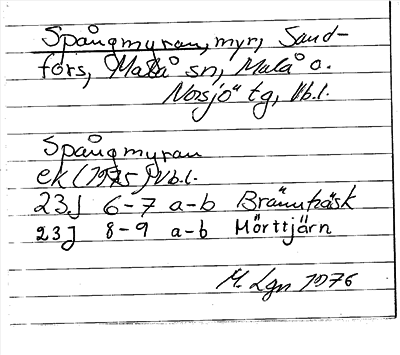 Spångmyran, myr, Sand-
fors, Malå sn, Malå o.
Norsjö tg, Vb.l.
Spångmyran
ek (1975) Vb.l.
23J 6-7 a-b Brännträsk
23J 8-9 a-b Mörttjärn
M. Lgn 1976